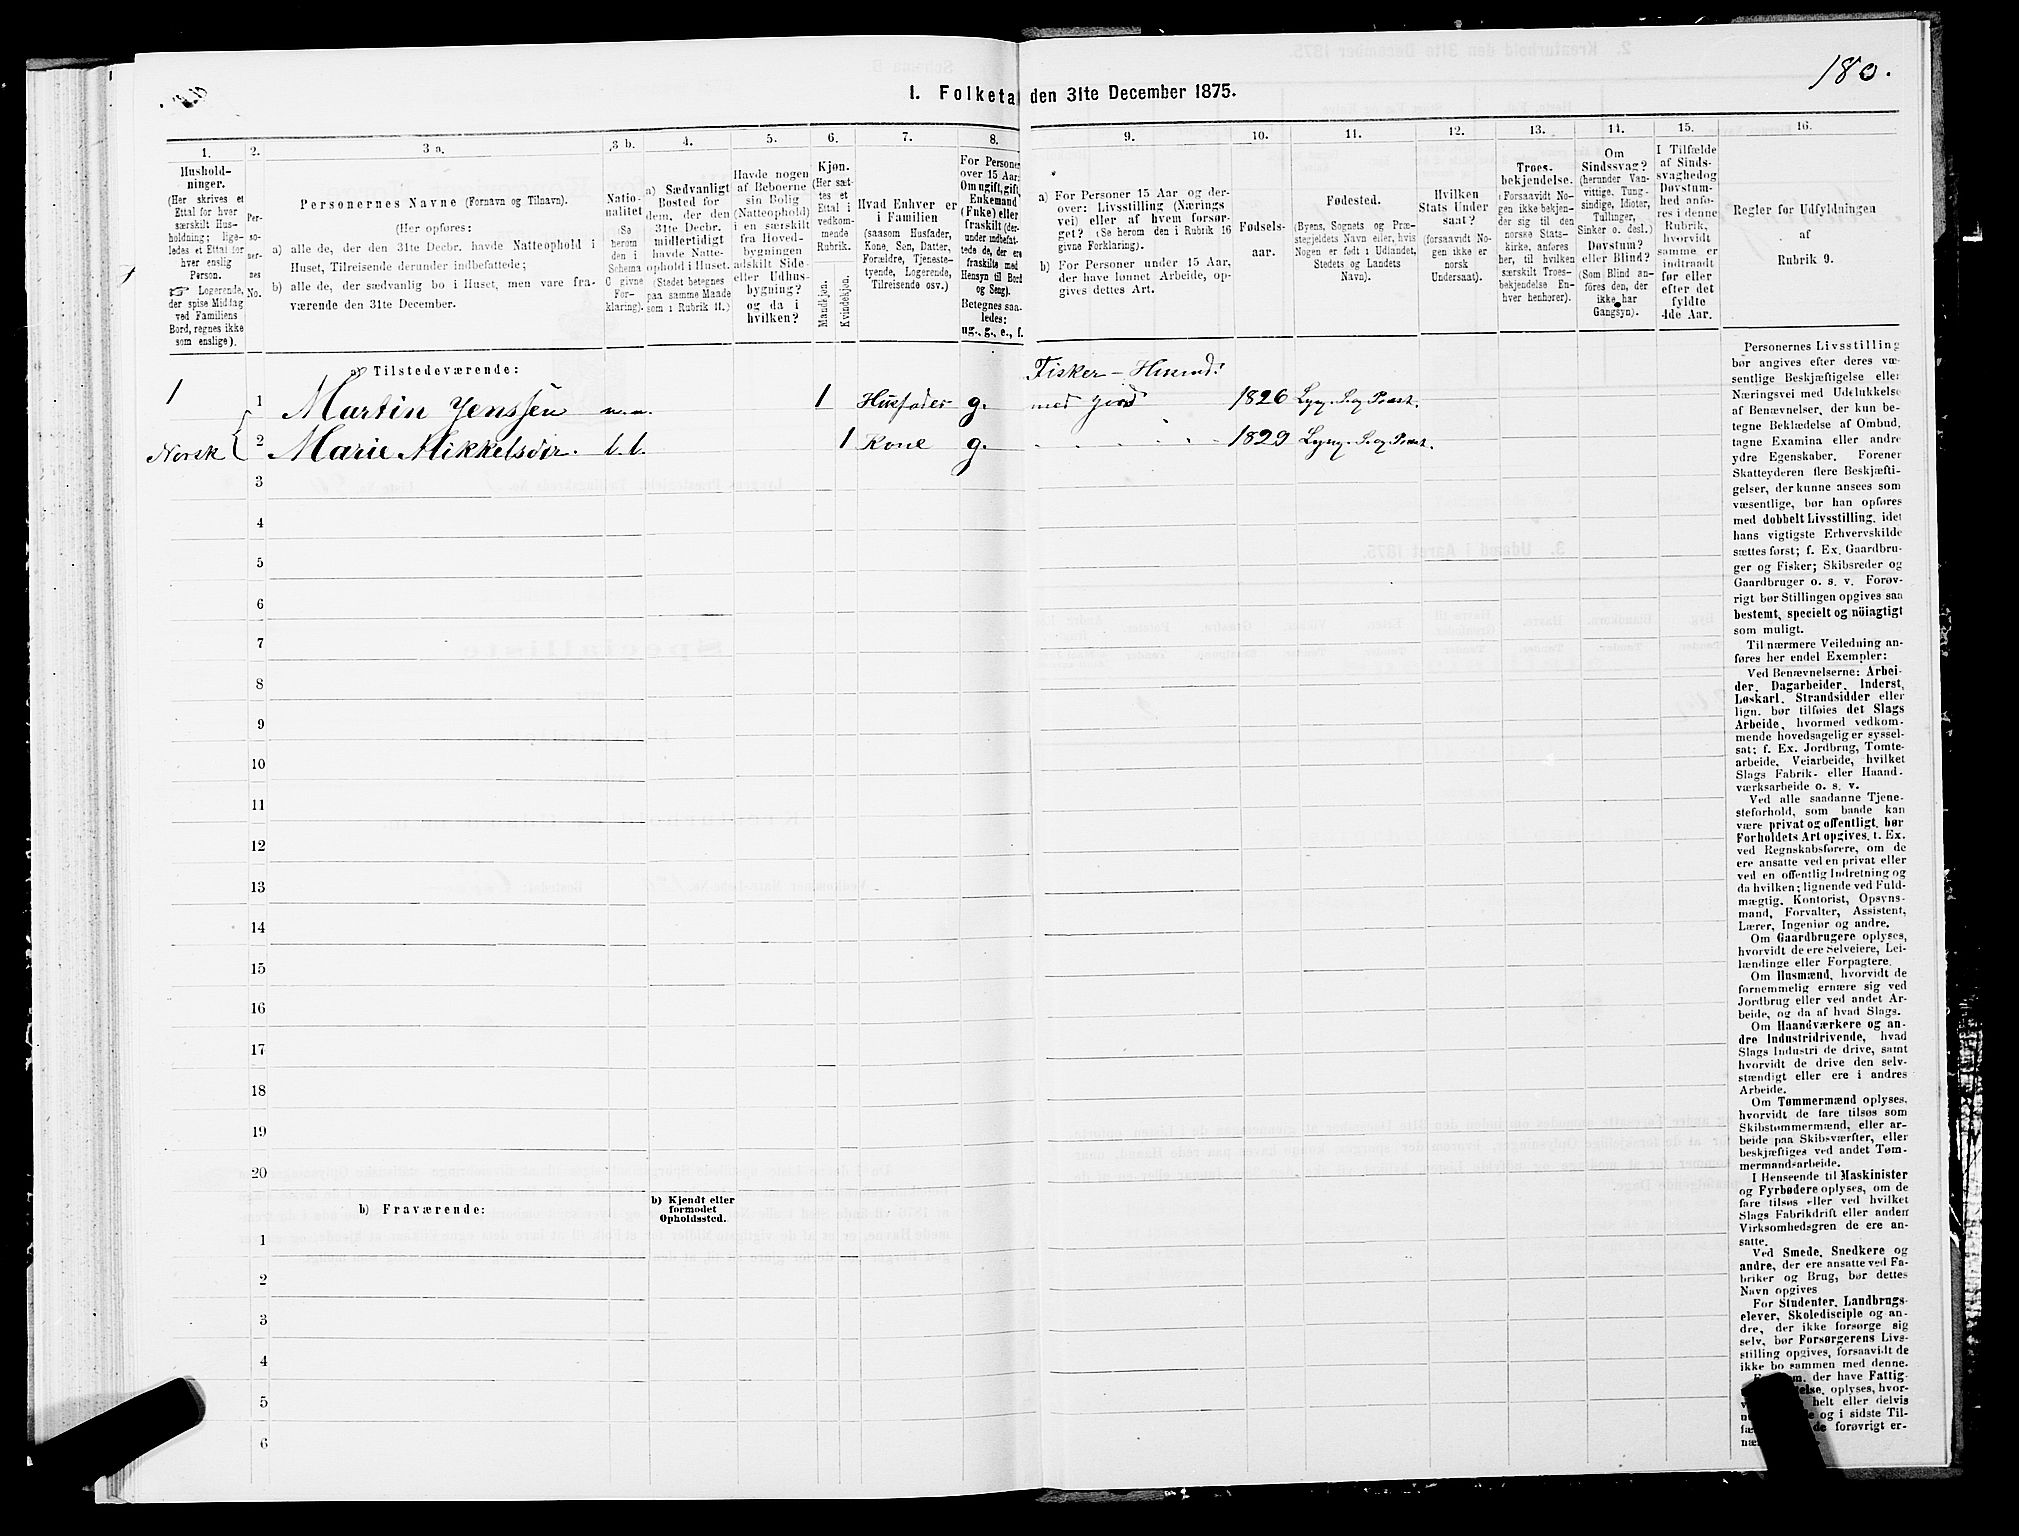 180.
I. Folketal den 31te December 1875.
1.
Hushold-
ninger.
(Her skrives et
Ettal for hver
særskilt Hus-
holdning; lige-
ledes et Ettal for
hver enslig
Person.
☞ Logerende,
der spise Middag
ved Familiens
Bord, regnes ikke
som enslige).
2.
Per-
so-
ner-
nes
No.
3 a.
Personernes Navne (Fornavn og Tilnavn).
(Her opføres:
a) alle de, der den 31te Decbr. havde Natteophold i
Huset, Tilreisende derunder indbefattede;
b) alle de, der sædvanlig bo i Huset, men vare fra-
værende den 31te December.
3 b.
Natio-
nalitet
(Se
herom
den i
Schema
C givne
For-
klaring).
4.
a) Sædvanligt
Bosted for
dem, der den
31te Decbr.
midlertidigt
havde Natte-
ophold i Huset.
(Stedet betegnes
paa samme Maade
som i Rubrik 11.)
5.
Havde nogen
af Beboerne
sin Bolig
(Natteophold)
i en særskilt
fra Hoved-
bygningen
adskilt Side-
eller Udhus-
bygning?
og da i
hvilken?
6.
Kjøn.
(Her sæt-
tes et
Ettal i
vedkom-
mende
Rubrik.
Mandkjøn.
Kvindekjøn.
7.
Hvad Enhver er
i Familien
(saasom Husfader,
Kone, Søn, Datter,
Forældre, Tjeneste-
tyende, Logerende,
Tilreisende osv.)
8.
For Personer
over 15 Aar:
Om ugift, gift,
Enkemand
(Enke) eller
fraskilt (der-
under indbefat-
tede de, der ere
fraskilte med
Hensyn til Bord
og Seng).
Betegnes saa-
ledes:
ug., g., e., f.
9.
a) For Personer 15 Aar og der-
over: Livsstilling (Nærings
vei) eller af hvem forsør-
get? (Se herom den i Rubrik 16
givne Forklaring).
b) For Personer under 15 Aar,
der have lønnet Arbeide, op-
gives dettes Art.
10.
Fødsels-
aar.
11.
Fødested.
(Byens, Sognets og Præ-
stegjeldets Navn eller, hvis
Nogen er født i Udlandet,
Stedets og Landets
Navn).
12.
Hvilken
Stats Under
saat?
(forsaavidt No-
gen ikke er
norsk
Undersaat).
13.
Troes-
bekjendelse.
(Forsaavidt No-
gen ikke bekjen-
der sig til den
norske Stats-
kirke, anføres
her, til hvilken
særskilt Troes-
bekjendelse En-
hver henhører).
14.
Om
Sindssvag?
(herunder Van-
vittige, Tung-
sindige, Idioter,
Tullinger,
Sinker o. desl.)
Døvstum?
eller Blind?
(Som Blind an-
føres den, der
ikke har
Gangsyn).
15.
I Tilfælde
af Sinds-
svaghed og
Døvstum-
hed anfø-
res i denne
Rubrik,
hvorvidt
samme er
indtraadt
før eller
efter det
fyldte
4de Aar.
16.
Regler for Udfyldningen
af
Rubrik 9.
a) Tilstedeværende:
Fisker - Husmd.
1 1 Martin Jenssen n.n. 1 Husfader g. med jord 1826 Lyng. S. og Præst.
Norsk 2 Marie Mikkelsdtr. b.b. 1 Kone g. " " " " 1829 Lyng. S. og Præst.
3
4
5
6
7
8
9
10
11
12
13
14
15
16
17
18
19
20
b) Fraværende:
b) Kjendt eller
formodet
Opholdssted.
1
2
3
4
5
6
Personernes Livsstilling
bør angives efter deres væ-
sentlige Beskjæftigelse eller
Næringsvei med Udelukkelse
af Benævnelser, der kun be-
tegne Beklædelse af Ombud,
tagne Examina eller andre
ydre Egenskaber. Forener
Skatteyderen flere Beskjæfti-
gelser, der kunne ansees som
væsentlige, bør han opføres
med dobbelt Livsstilling, idet
hans vigtigste Erhvervskilde
sættes først; f. Ex. Gaardbru-
ger og Fisker; Skibsreder og
Gaardbruger o. s. v. Forøv-
rigt bør Stillingen opgives saa
bestemt, specielt og nöiagtigt
som muligt.
Til nærmere Veiledning an-
føres her endel Exempler:
Ved Benævnelserne: Arbei-
der, Dagarbeider, Inderst,
Løskarl, Strandsidder eller
lign. bør tilføies det Slags
Arbeide, hvormed vedkom-
mende hovedsagelig er syssel-
sat; f. Ex. Jordbrug, Tomte-
arbeide, Veiarbeide, hvilket
Slags Fabrik- eller Haand-
værksarbeide o. s. v.
Ved alle saadanne Tjene-
steforhold, som baade kan
være privat og offentligt, bør
Forholdets Art opgives, t. Ex.
ved Regnskabsførere, om de
ere ansatte ved en privat eller
ved en offentlig Indretning og
da hvilken; lignende ved Fuld-
mægtig, Kontorist, Opsyns-
mand, Forvalter, Assistent,
Lærer, Ingeniør og andre.
Om Gaardbrugere oplyses,
hvorvidt de ere Selveiere, Lei-
lændinge eller Forpagtere.
Om Husmænd, hvorvidt de
fornemmelig ernære sig ved
Jordbrug eller ved andet Ar-
beide, og da af hvad Slags.
Om Haandværkere og an-
dre Industridrivende, hvad
Slags Industri de drive, samt
hvorvidt de drive den selv-
stændigt eller ere i andres
Arbeide.
Om Tømmermænd oplyses,
hvorvidt de fare tilsøs som
Skibstømmermænd, eller ar-
beide paa Skibsværfter, eller
beskjæftiges ved andet Tøm-
mermandsarbeide.
I Henseende til Maskinister
og Fyrbødere oplyses, om de
fare tilsøs eller ved hvilket
Slags Fabrikdrift eller anden
Virksomhedsgren de ere an-
satte.
Ved Smede, Snedkere og
andre, der ere ansatte ved Fa-
briker og Brug, bør dettes
Navn opgives
For Studenter, Landbrugs-
elever, Skoledisciple og an-
dre, der ikke forsørge sig
selv, bør Forsørgerens Livs-
stilling opgives, forsaavidt de
ikke bo sammen med denne.
der have Fattig-
oplyses, hvor-
helt eller delvis
og i sidste Til-
forøvrigt er-